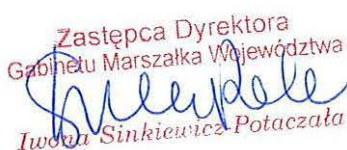 Zastępca Dyrektora
Gabinetu Marszałka Województwa
Iwona Sinkiewicz-Potaczała